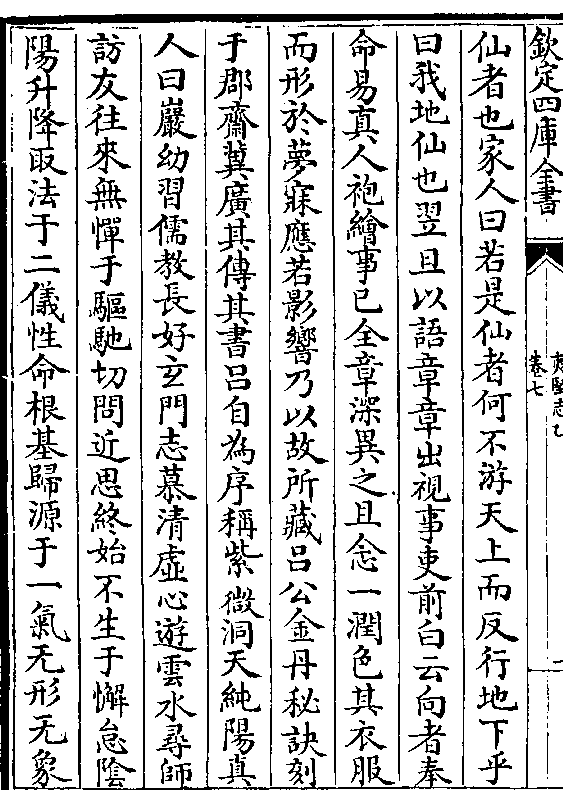 欽定四庫全書
卷七
仙者也家人曰若是仙者何不游天上而反行地下乎
曰我地仙也翌旦以語章章出視事吏前白云向者奉
命易真人袍繪事已全章深異之且念一潤色其衣服
而形於夢寐應若影響乃以故所藏吕公金丹秘訣刻
于郡齋冀廣其傳其書吕自為序稱紫微洞天純陽真
人曰巖幼習儒教長好玄門志慕清虛心遊雲水尋師
訪友往來無憚于驅馳切問近思終始不生于懈怠陰
陽升降取法于二儀性命根基歸源于一氣无形无象